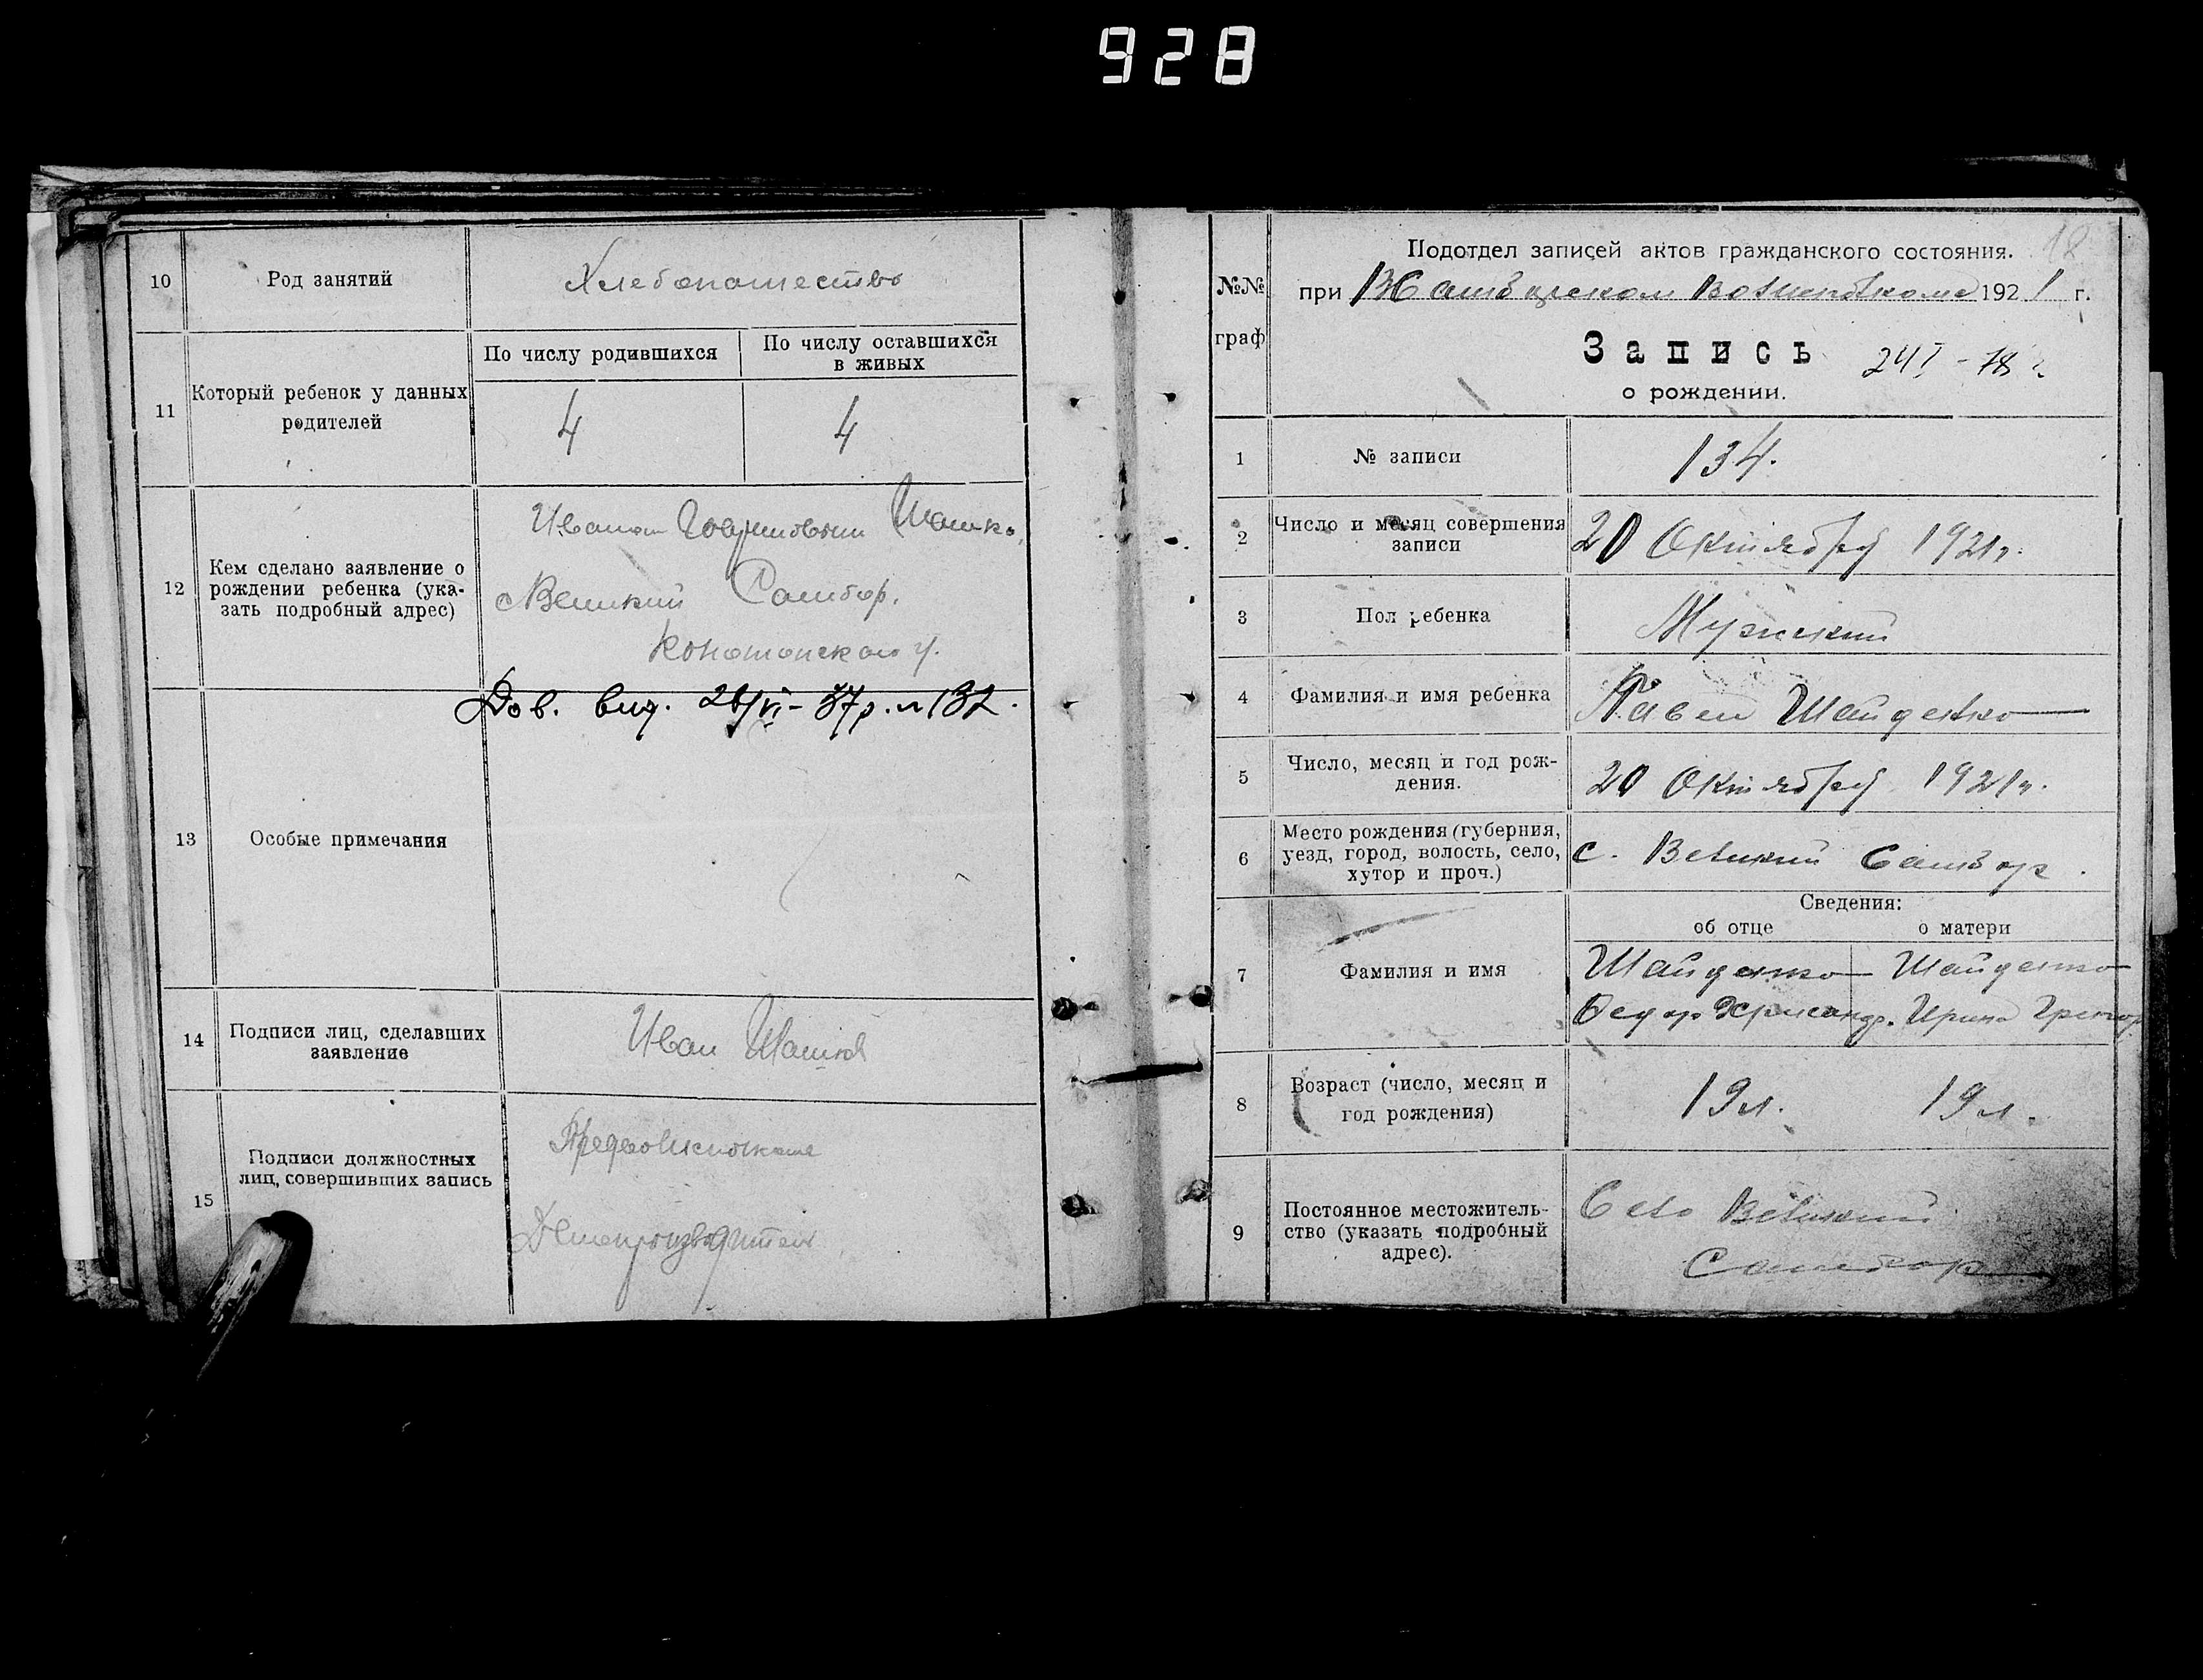 928
10
Род занятий
Хлебопашество
11
Который ребенок у данных
родителей
По числу родившихся
По числу оставшихся
в живых
4
4
12
Кем сделано заявление о
рождении ребенка (ука-
зать подробный адрес)
Иваном Шашко,
с Великий Самбор,
Конотопского у.
13
Особые примечания
Дов. вид. VI - 37р. 132.
14
Подписи лиц, сделавших
заявление
Иван
15
Подписи должностных
лиц, совершивших запись
Делопроизводитель
№№
граф
Подотдел записей актов гражданского состояния.
18
при 1921 г.
Запись
о рождении.
1
№ записи
134.
2
Число и месяц совершения
записи
20 Октября 1921 г.
3
Пол ребенка
Мужский
4
Фамилия и имя ребенка
Павел Шайденко
5
Число, месяц и год рож-
дения.
20 Октября 1921 г.
6
Место рождения (губерния,
уезд, город, волость, село,
хутор и проч.)
с. Великий Самбор
7
Фамилия и имя
Сведения:
об отце
о матери
Шайденко
Федор Хрисанф.
Шайденко
Ирина Григор
8
Возраст (число, месяц и
год рождения)
19 л.
19 л.
9
Постоянное местожитель-
ство (указать подробный
адрес).
Село Великий
Самбор